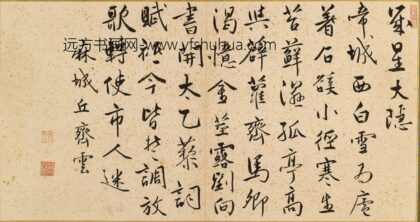 歲星大隱
帝城西白雪為廬
著石磎小徑寒生
苔蘚溼孤亭高
與薜蘿齊馬卿
渴憶金莖露劉向
書開太乙藜詞
賦祗今皆調放
歌轉使市人迷
麻城丘齊雲
远方书画网 www.yfshuhua.com